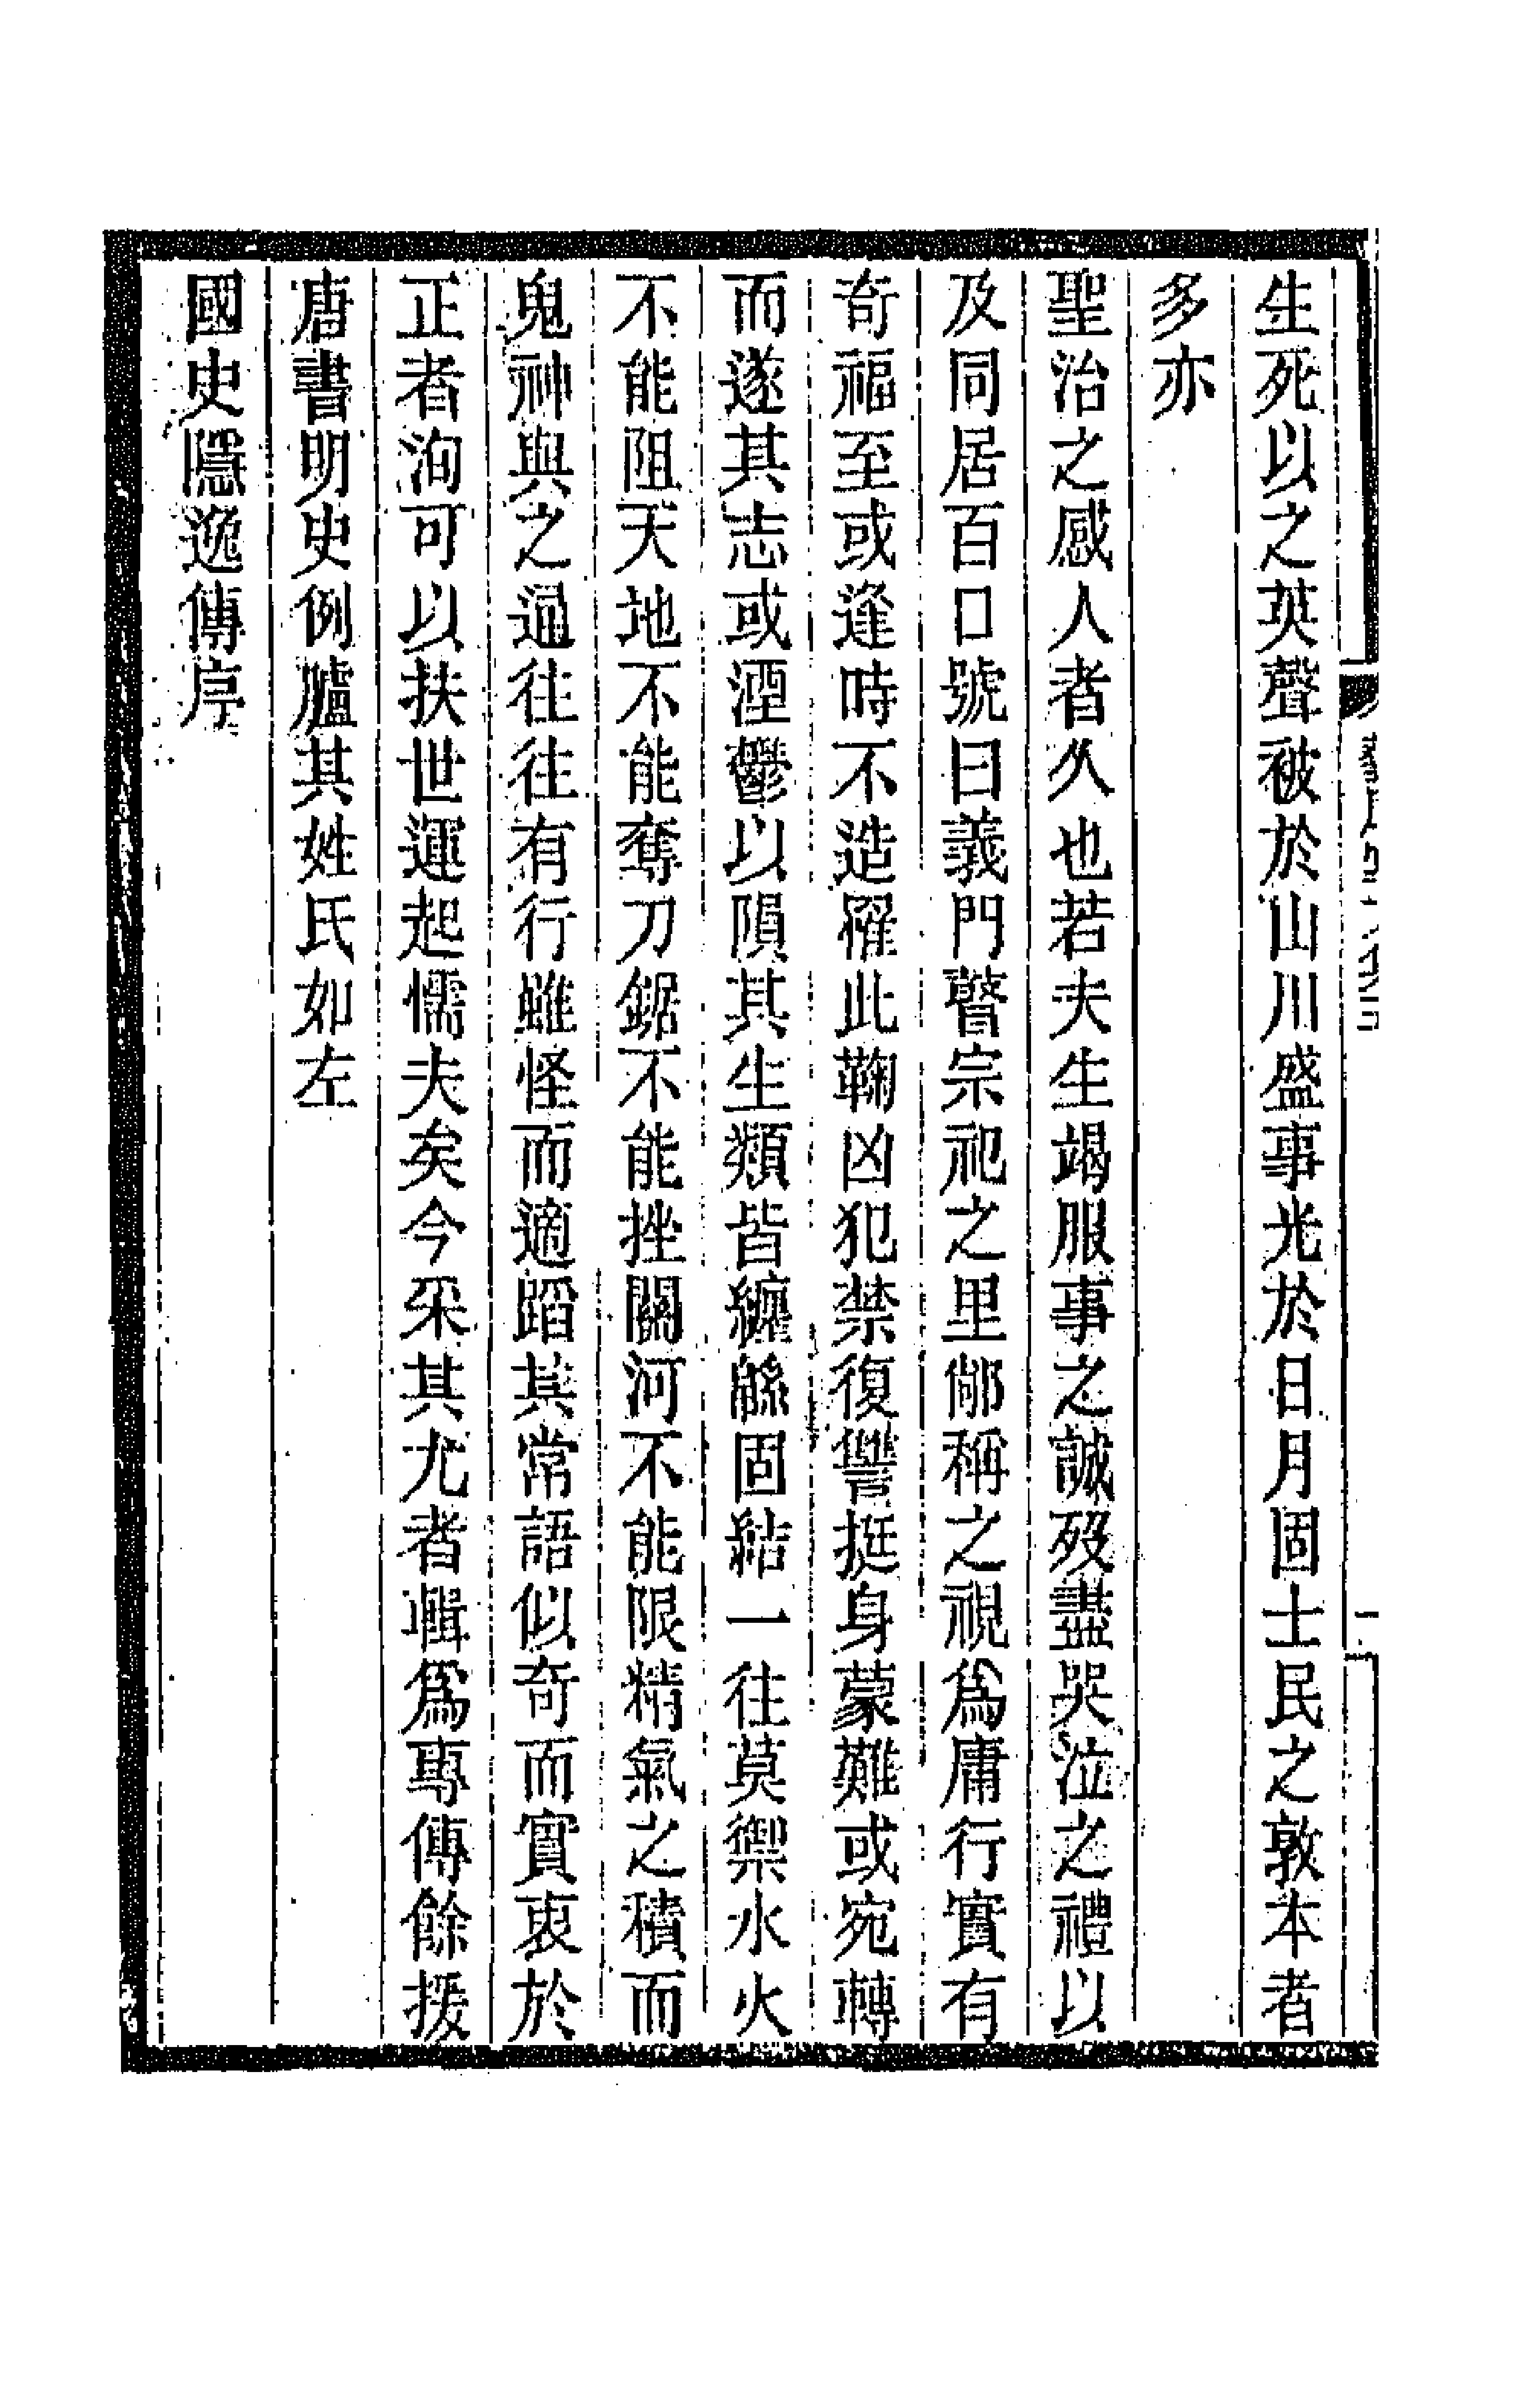 生死以之英聲被於山川盛事光於日月固士民之敦本者
多亦
聖治之感人者久也若夫生竭服事之誠歿盡哭泣之禮以
及同居百口號曰義門瞽宗祀之里鄰稱之視爲庸行實有
奇福至或逢時不造罹此鞠凶犯禁復讐挺身蒙難或宛轉
而遂其志或湮鬱以隕其生類皆纏緜固結一往莫禦水火
不能阻天地不能奪刀鋸不能挫關河不能限精氣之積而
鬼神與之通往往有行雖怪而適蹈其常語似奇而實衷於
正者洵可以扶世運起懦夫矣今采其尤者輯爲專傳餘援
唐書明史例臚其姓氏如左
國史隱逸傳序